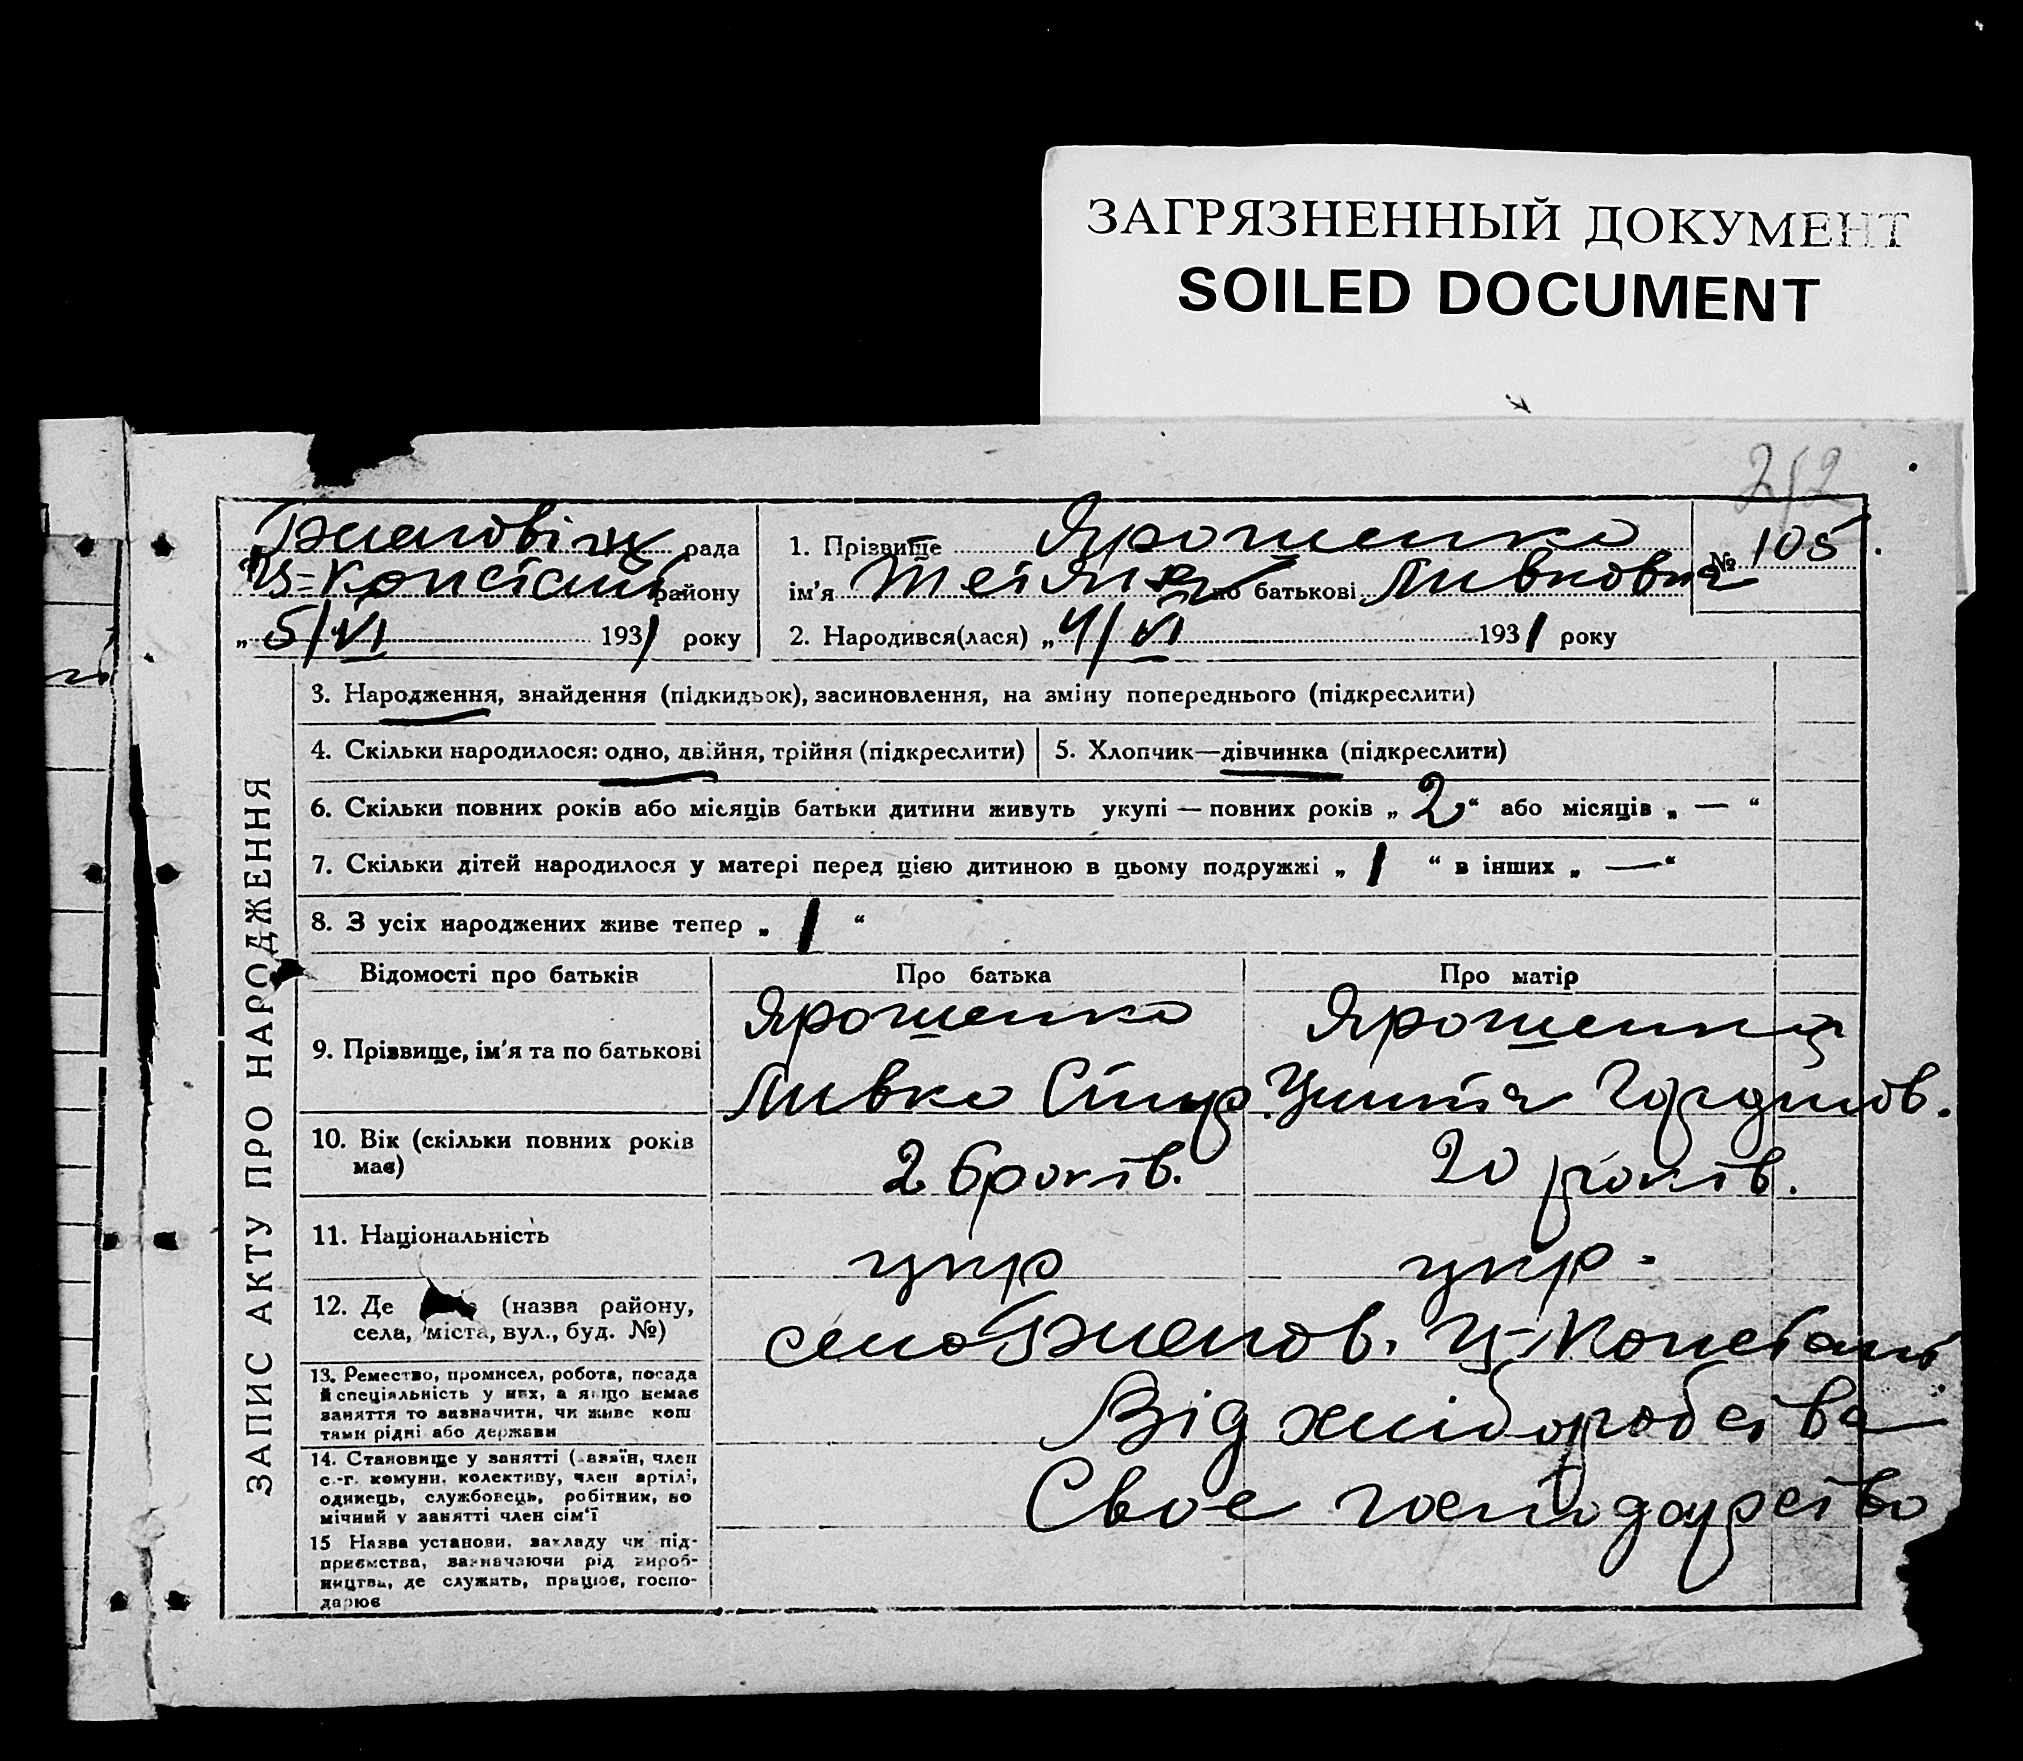 ЗАГРЯЗНЕННЫЙ ДОКУМЕНТ
SOILED DOCUMENT
252
рада
Ц-Констант району
„ 5/VI 1931 року
1. Прізвище Ярошенко
№ 105
ім'я Тетяна по батькові Ливковна
2. Народився(лася) „ 4/VI 1931 року
ЗАПИС АКТУ ПРО НАРОДЖЕННЯ
3. Народження, знайдення (підкидьок), засиновлення, на зміну попереднього (підкреслити)
4. Скільки народилося: одно, двійня, трійня (підкреслити) 5. Хлопчик—дівчинка (підкреслити)
6. Скільки повних років або місяців батьки дитини живуть укупі — повних років „ 2 “ або місяців „ — “
7. Скільки дітей народилося у матері перед цією дитиною в цьому подружжі „ 1 “ в інших „ — “
8. З усіх народжених живе тепер „ 1 “
Відомості про батьків Про батька Про матір
9. Прізвище, ім'я та по батькові
Ярошенко
Ливко Спир.
Ярошенко
Гордіїов.
10. Вік (скільки повних років має)
26 років.
20 років.
11. Національність укр укр.
12. Де (назва району,
села, міста, вул., буд. №)
село Ц-Констант
13. Ремество, промисел, робота, посада
й спеціяльність у них, а якщо немає
заняття то зазначити, чи живе кош
тами рідні або держави
Від хліборобства
14. Становище у занятті (хазяїн, член
с.-г. комуни, колективу, член артілі,
одинець, службовець, робітник, по
мічний у занятті член сім'ї
Своє господарство
15 Назва установи, закладу чи під-
приємства, зазначаючи рід вироб-
ництва, де служить, працює, госпо-
дарює